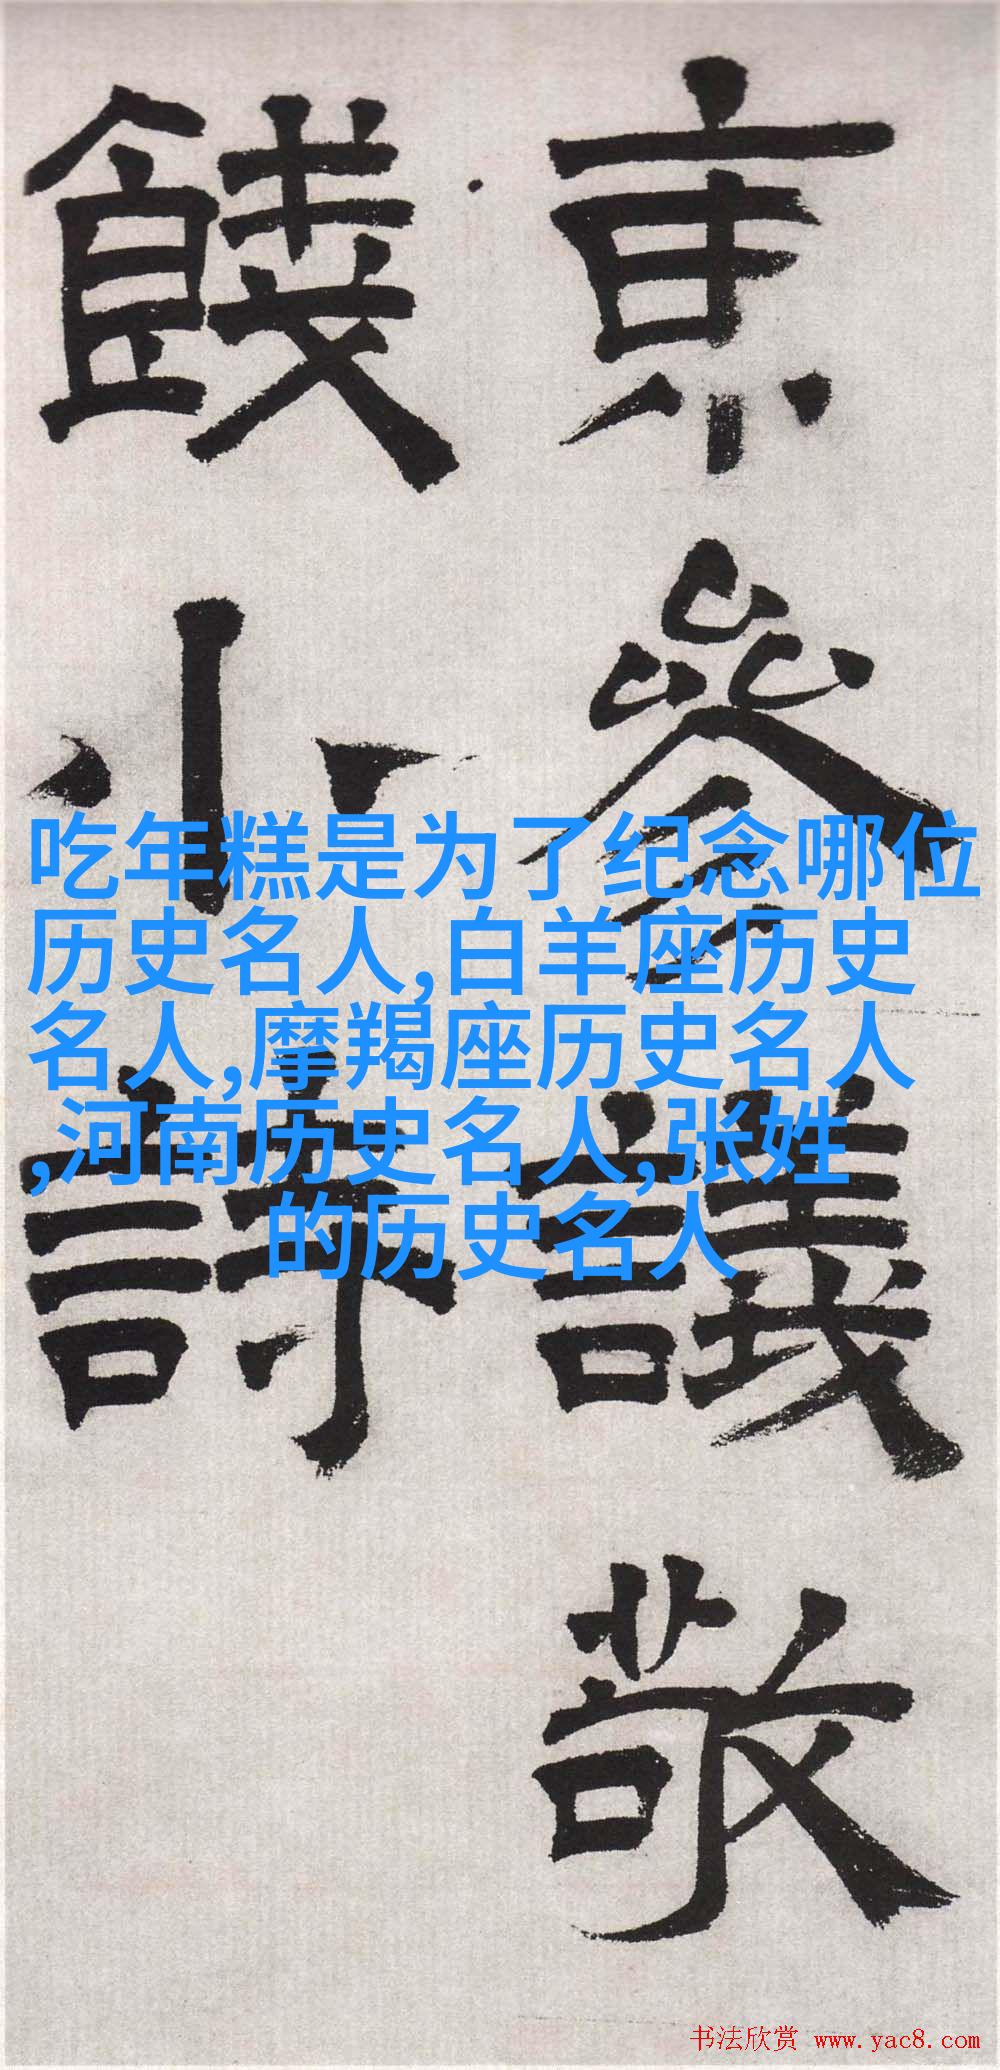 京參議敬
餞小詩
吃年糕是为了纪念哪位
历史名人,白羊座历史
名人,摩羯座历史名人
,河南历史名人,张姓
的历史名人
书法欣赏 www.yac8.com